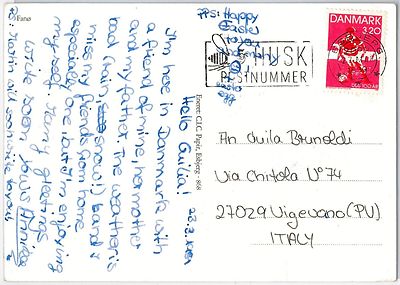 Fanø
PPS: Happy
Easter
to you
HUSK
POSTNUMMER
DANMARK
3.20
Hello Guilia!
I'm here in Danmark with
a friend of mine, her mother
and my father. The weather is
bad (rain, snow!) and I
miss my friends from home
especially one but I'm enjoying
myself. Many greetings
write soon yours Annika
Eneret: C.I.C. Papir, Esbjerg - 868
An Guila Brunoldi
Via Chitola N°74
27029 Vigevano (PV)
ITALY